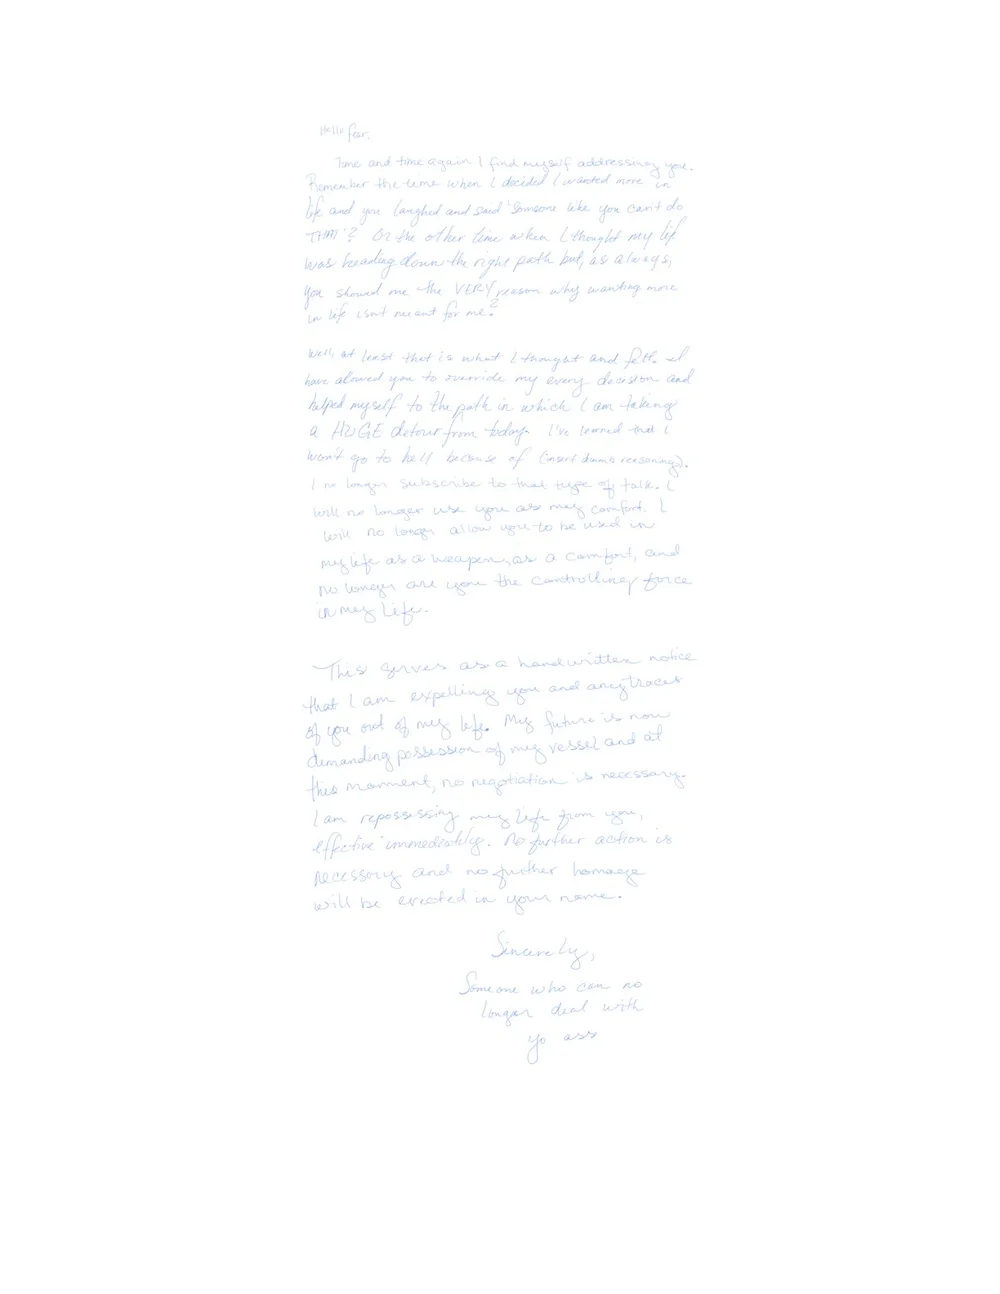 Hello fear,
Time and time again I find myself addressing you.
Remember the time when I decided I wanted more in
life and you laughed and said 'someone like you can't do
THAT'? Or the other time when I thought my life
was heading down the right path but, as always,
you showed me the VERY reason why wanting more
in life isn't meant for me?
Well, at least that is what I thought and felt. I
have allowed you to override my every decision and
helped myself to the path in which I am taking
a HUGE detour from today. I've learned that I
won't go to hell because of (insert dumb reasoning).
I no longer subscribe to that type of talk. I
will no longer use you as my comfort. I
will no longer allow you to be used in
my life as a weapon, as a comfort, and
no longer are you the controlling force
in my life.
This serves as a handwritten notice
that I am expelling you and any traces
of you out of my life. My future is now
demanding possession of my vessel and at
this moment, no negotiation is necessary.
I am repossessing my life from you,
effective immediately. No further action is
necessary and no further homage
will be erected in your name.
Sincerely,
Someone who can no
longer deal with
yo ass